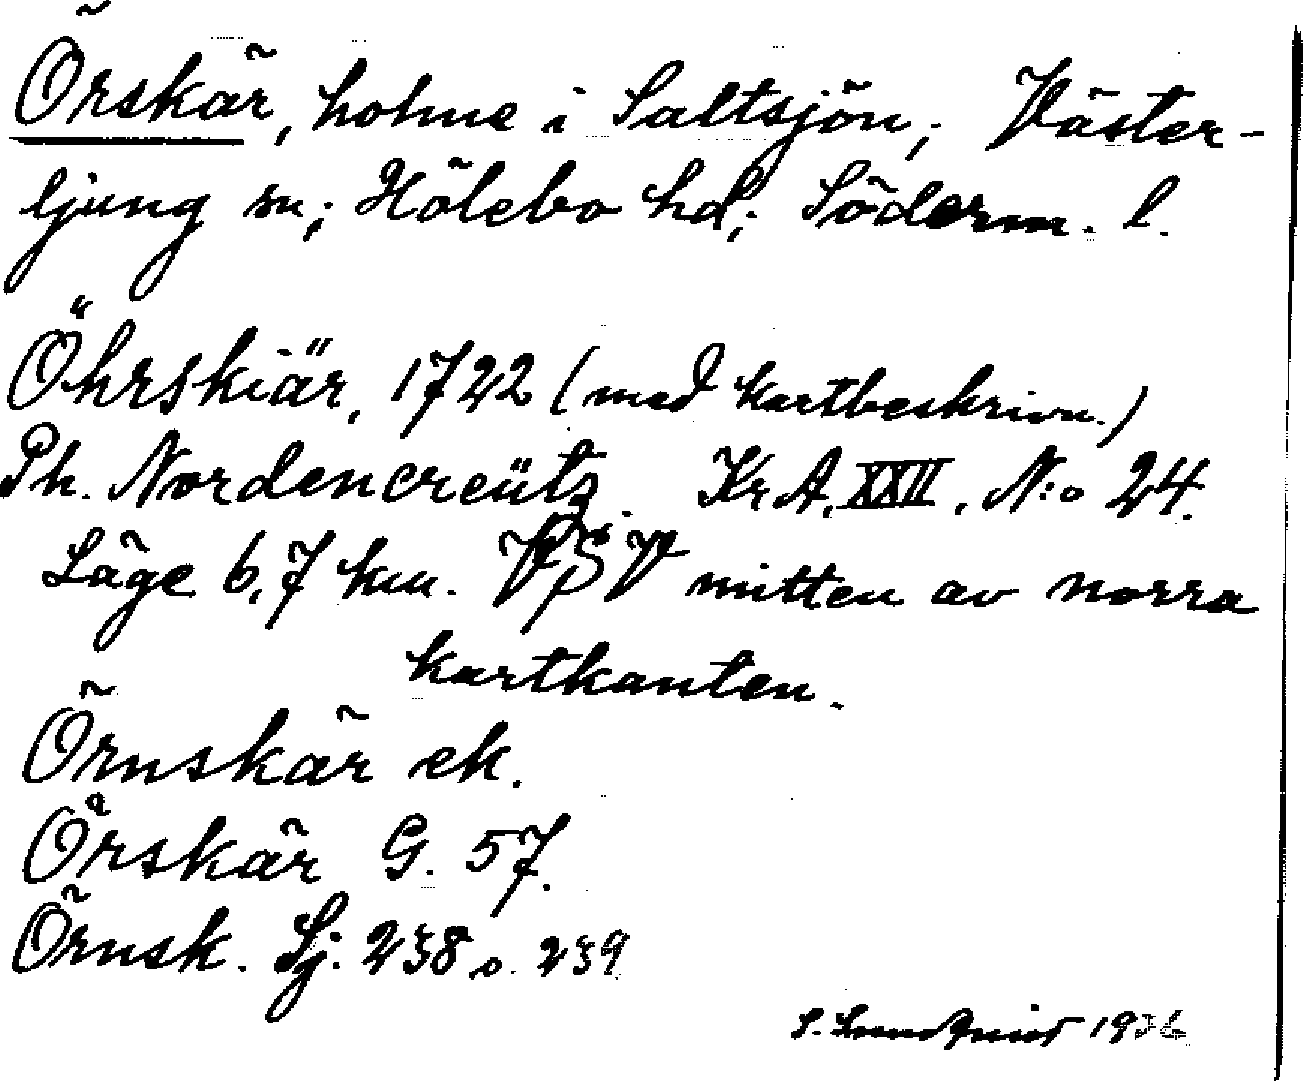 Örskär, holme i Saltsjön; Väster-
ljung sn; Hölebo hd; Söderm. l.
Öhrskiär, 1722 (med kartbeskrivn.)
Ph. Nordencreütz. Kr.A. XXII. N:o 24.
Läge 6,7 km. VSV mitten av norra
kartkanten.
Örnskär ek.
Örskär G. 57.
Örnsk. Sj. 238 o. 239
S. Lundqvist 1936